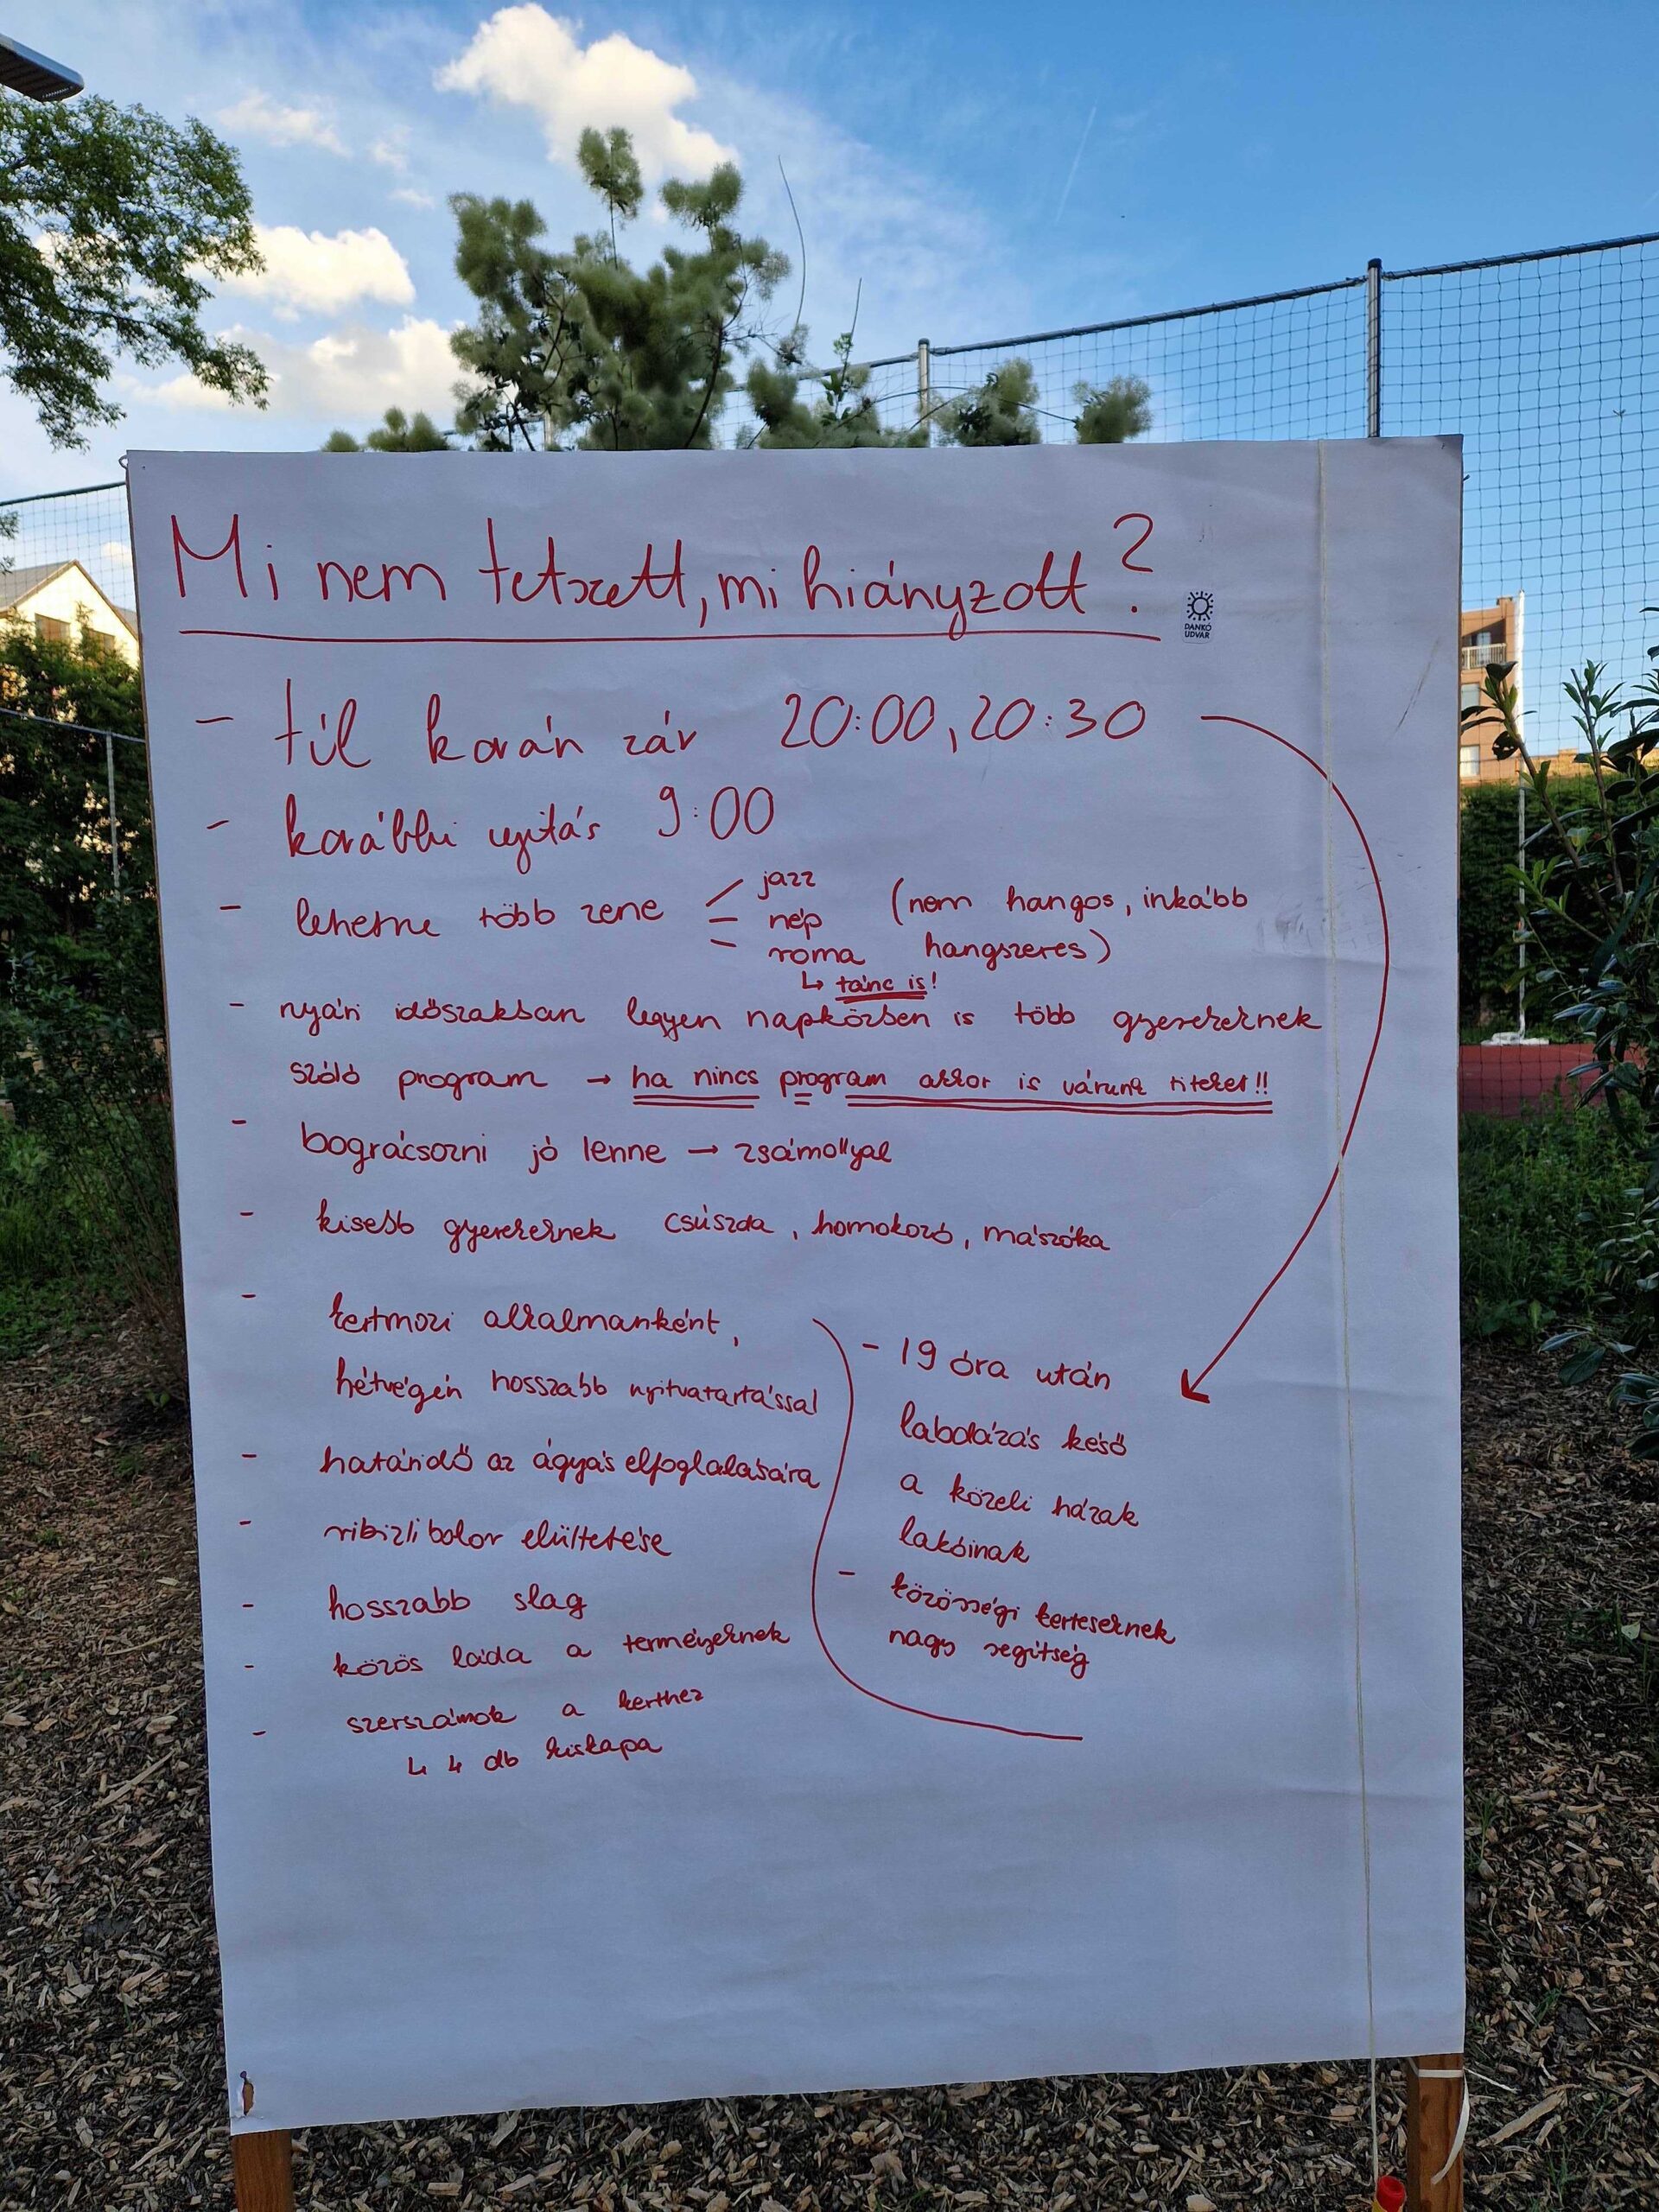 Mi nem tetszett, mi hiányzott?
DANKÓ
UDVAR
- túl korán zár 20:00, 20:30
- korábbi nyitás 9:00
- lehetne több zene - jazz
- nép
- roma
(nem hangos, inkább
hangszeres)
↳ tánc is!
- nyári időszakban legyen napközben is több gyerekeknek
szóló program → ha nincs program akkor is várunk titeket!!
- bográcsozni jó lenne → zsámollyal
- kisebb gyerekeknek csúszda, homokozó, mászóka
- kertmozi alkalmanként,
hétvégén hosszabb nyitvatartással
- határidő az ágyás elfoglalására
- ribizlibokor elültetése
- hosszabb slag
- közös láda a terményeknek
- szerszámok a kerthez
↳ 4 db kiskapa
- 19 óra után
labdázás késő
a közeli házak
lakóinak
- közösségi kerteseknek
nagy segítség